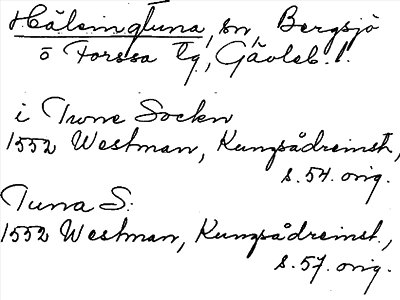 Hälsingtuna, sn, Bergsjö
o Forssa tg, Gävleb. l.
i Twne Sockn
1552 Westman, Kungsådreinst.,
s. 54. orig.
Tuna S:
1552 Westman, Kungsådreinst.,
s. 57. orig.